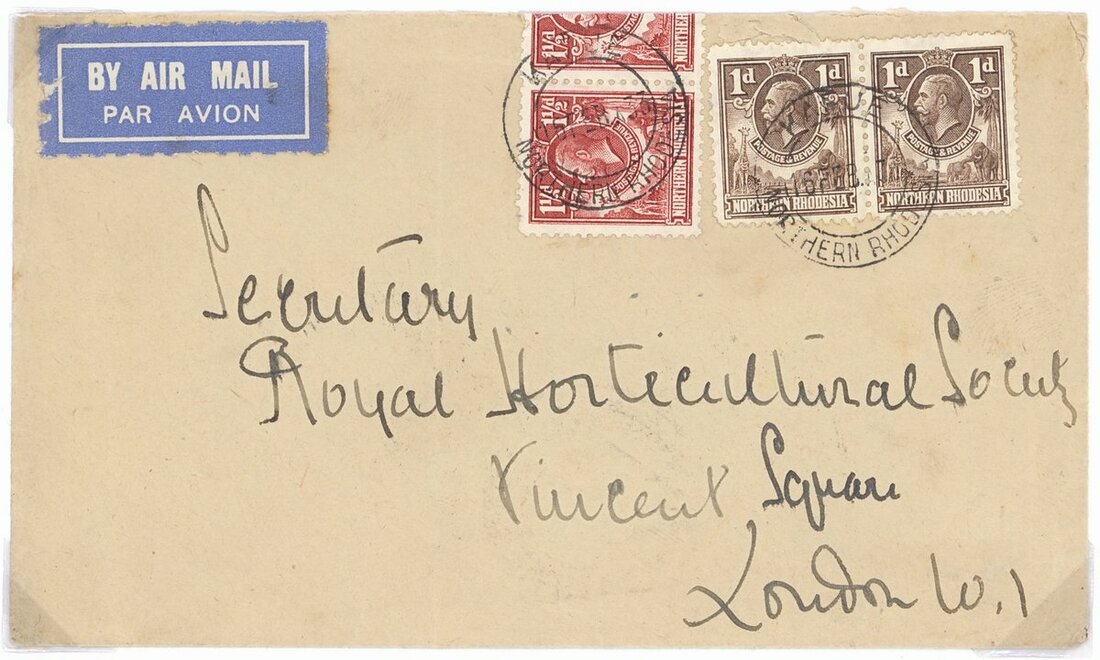 BY AIR MAIL
PAR AVION
1½d
NORTHERN
1½d 1½
POSTAGE & REVENUE
NORTHERN
NORTHERN RHOD
1d 1d
POSTAGE & REVENUE
NORTHERN RHODESIA
1d 1d
POSTAGE & REVENUE
NORTHERN RHODESIA
16 FEB
NORTHERN RHOD
Secretary
Royal Horticultural Society
Vincent Square
London W.1